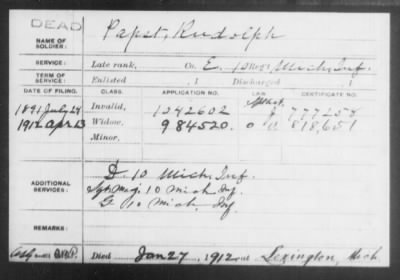 DEAD
NAME OF SOLDIER: Papst, Rudolph
SERVICE: Late rank, Co. E, 10 Reg't Mich. Inf.
TERM OF SERVICE: Enlisted , 1 Discharged , 1
DATE OF FILING. CLASS. APPLICATION NO. LAW. CERTIFICATE NO.
1891 July 27 Invalid, 1042602 777258
1912 Apr 23 Widow, 984520. 818,651
Minor,
D. 10 Mich. Inf.
ADDITIONAL SERVICES: Sgt Maj. 10 Mich Inf.
G 10 Mich. Inf.
REMARKS:
Died Jan 27, 1912 at Lexington, Mich.